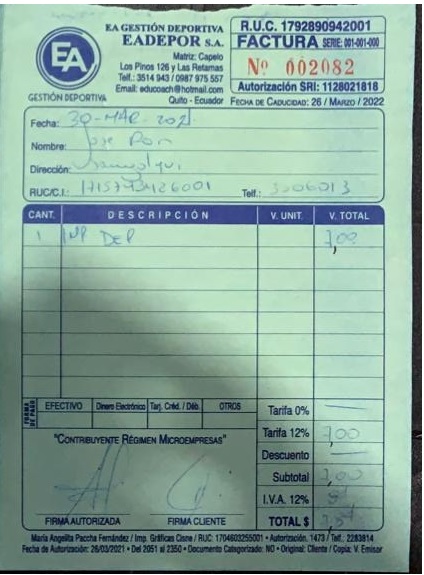 EA
GESTIÓN DEPORTIVA
EA GESTIÓN DEPORTIVA
EADEPOR S.A.
Matriz: Capelo
Los Pinos 126 y Las Retamas
Telf.: 3514 943 / 0987 975 557
Email: educoach@hotmail.com
Quito - Ecuador
R.U.C. 1792890942001
FACTURA SERIE: 001-001-000
Nº 002082
Autorización SRI: 1128021818
FECHA DE CADUCIDAD: 26 / MARZO / 2022
Fecha: 30-MAR-2021
Nombre: Jose
Dirección:
RUC/C.I.: Telf.: 3306013
CANT. DESCRIPCIÓN V. UNIT. V. TOTAL
1 IMP DEP 7,00
FORMA DE PAGO
EFECTIVO Dinero Electrónico Tarj. Créd. / Déb. OTROS
Tarifa 0% —
"CONTRIBUYENTE RÉGIMEN MICROEMPRESAS" Tarifa 12% 7,00
Descuento —
Subtotal 7,00
I.V.A. 12%
FIRMA AUTORIZADA FIRMA CLIENTE TOTAL $
María Angelita Paccha Fernández / Imp. Gráficas Cisne / RUC: 1704603255001 • Autorización. 1473 / Telf.: 2283814
Fecha de Autorización: 26/03/2021 • Del 2051 al 2350 • Documento Categorizado: NO • Original: Cliente / Copia: V. Emisor